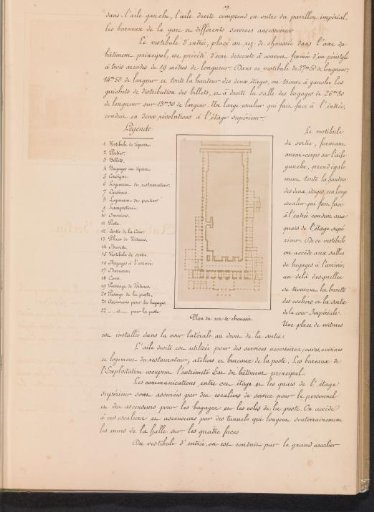 dans l'aile gauche, l'aile droite comprend en outre du pavillon impérial,
les bureaux de la gare et différents services accessoires.
Le vestibule d'entrée, placé au rez de chaussée dans l'axe du
bâtiment principal, est précédé d'une descente à couvert formée d'un portique
à trois arcades de 19 mètres de longueur. Dans ce vestibule de
de largeur et toute la hauteur des deux étages, on trouve à gauche les
guichets de distribution des billets, et à droite la salle des bagages de
de longueur sur de largeur. Un large escalier qui fait face à l'entrée,
conduit en deux révolutions à l'étage supérieur.
Légende
1 Vestibule de départ
3 Billets
4 Bagages au départ
6 Logement du restaurateur
7 Cuisines
8 Logement du portier
12 Sortie de la Cour
13 Place de Voitures
15 Vestibule de sortie
16 Bagages à l'arrivée
18 Cour
19 Passage de Voitures
20 Passage de la poste
21 Ascenseurs pour les bagages
22 d° pour la poste
Plan du rez de chaussée
Le vestibule
de sortie, formant
avant-corps sur l'aile
gauche, prend égale
ment toute la hauteur
des deux étages, un large
escalier qui fait face
à l'entrée conduit aux
quais de l'étage supé
rieur. De ce vestibule
on accède aux salles
de bagages à l'arrivée,
au delà desquelles
se trouvent la buvette
des cochers et la sortie
de la cour Impériale.
Une place de voitures
est installée dans la cour latérale au devant de la sortie.
L'aile droite est utilisée pour des services accessoires, caves, cuisines
et logement du restaurateur, ateliers et bureaux de la poste. Les bureaux de
l'Exploitation occupent l'extrémité Est du bâtiment principal.
Les communications entre cet étage et les quais de l'étage
supérieur sont assurées par des escaliers de service pour le personnel
et des ascenseurs pour les bagages et les colis de la poste. On accède
à ces escaliers et ascenseurs par des tunnels qui longent souterrainement
les murs de la halle sur les quatre faces.
Du vestibule d'entrée, on est conduit par le grand escalier